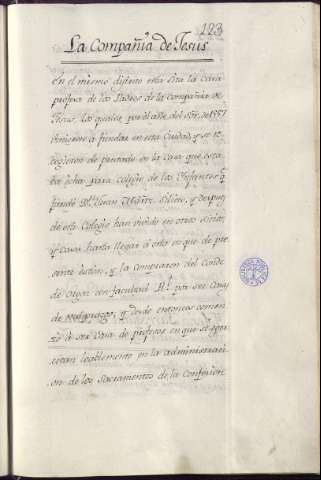 123
La Compañia de Jesus
En el mismo distrito esta sita la casa
profesa de los Padres de la Compañia de
Jesus, los quales por el año del Sor. de 1557
binieron a fundar en esta Ciudad, y se re
cogieron de prestado en la casa que esta
ba hecha para colegio de los Infantes q
fundó Dn. Juan Martz. Siliceo, y despues
de este Colegio han vivido en otros sitios
y casas hasta llegar á este en que de pre
sente estan, y la compraron del Conde
de Orgaz con facultad Rl. por ser Casas
de mayorazgo, y desde entonces comen
zó a ser casa de profesos en que se exer
citan loablemente en la administraci
on de los Sacramentos de la Confesion